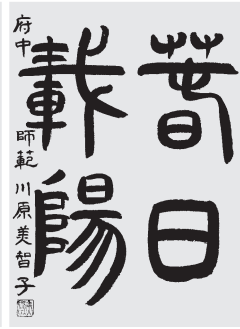 春日
載陽
府中 師範 川原美智子